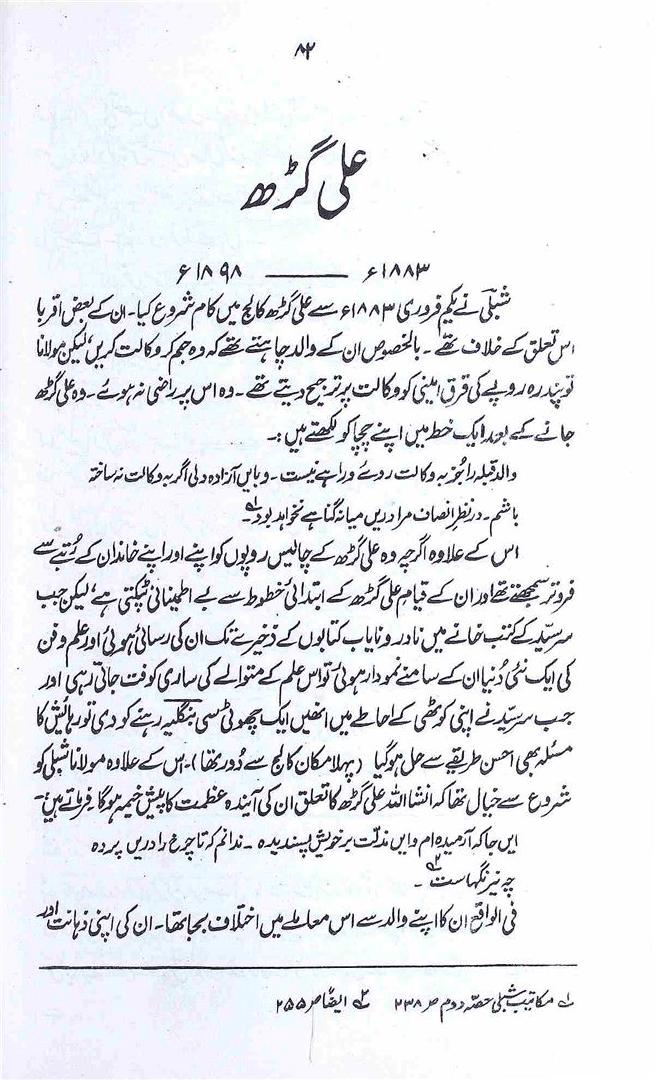 ۸۲
علی گڑھ
۱۸۸۳ء ——— ۱۸۹۸ء
شبلی نے یکم فروری ۱۸۸۳ء سے علی گڑھ کالج میں کام شروع کیا۔ ان کے بعض اقربا
اس تعلق کے خلاف تھے۔ بالخصوص ان کے والد چاہتے تھے کہ وہ جم کر وکالت کریں، لیکن مولانا
تو پندرہ روپے کی قرق امینی کو وکالت پر ترجیح دیتے تھے۔ وہ اس پر راضی نہ ہوئے۔ وہ علی گڑھ
جانے کے بعد ایک خط میں اپنے چچا کو لکھتے ہیں:-
والد قبلہ را جُز بہ وکالت روے و راہے نیست۔ و بایں آزادہ دلی اگر بہ وکالت نہ ساختہ
باشم۔ در نظرِ انصاف مرا دریں میانہ گناہے نخواہد بود۔ ؎۱
اس کے علاوہ اگرچہ وہ علی گڑھ کے چالیس روپوں کو اپنے اور اپنے خاندان کے رُتبے سے
فروتر سمجھتے تھے اور ان کے قیام علی گڑھ کے ابتدائی خطوط سے بے اطمینانی ٹپکتی ہے، لیکن جب
سرسیّد کے کتب خانے میں نادر و نایاب کتابوں کے ذخیرے تک ان کی رسائی ہوئی اور علم و فن
کی ایک نئی دُنیا ان کے سامنے نمودار ہوئی تو اس علم کے متوالے کی ساری کوفت جاتی رہی اور
جب سرسیّد نے اپنی کوٹھی کے احاطے میں انھیں ایک چھوٹی سی بنگلیہ رہنے کو دی تو رہائش کا
مسئلہ بھی احسن طریقے سے حل ہو گیا (پہلا مکان کالج سے دُور تھا)۔ اس کے علاوہ مولانا شبلی کو
شروع سے خیال تھا کہ انشا اللہ علی گڑھ کا تعلق ان کی آیندہ عظمت کا پیش خیمہ ہو گا۔ فرماتے ہیں:-
ایں جا کہ آرمیدہ ام و ایں مذلّت بر خویش پسندیدہ۔ ندانم کہ تا چرخ را دریں پردہ
چہ نیرنگہاست ؎۲ ۔
فی الواقع ان کا اپنے والد سے اس معاملے میں اختلاف بجا تھا۔ ان کی اپنی ذہانت اور
؎۱ مکاتیب شبلی حصّہ دوم ص ۲۳۸ ؎۲ ایضاً ص ۲۵۵